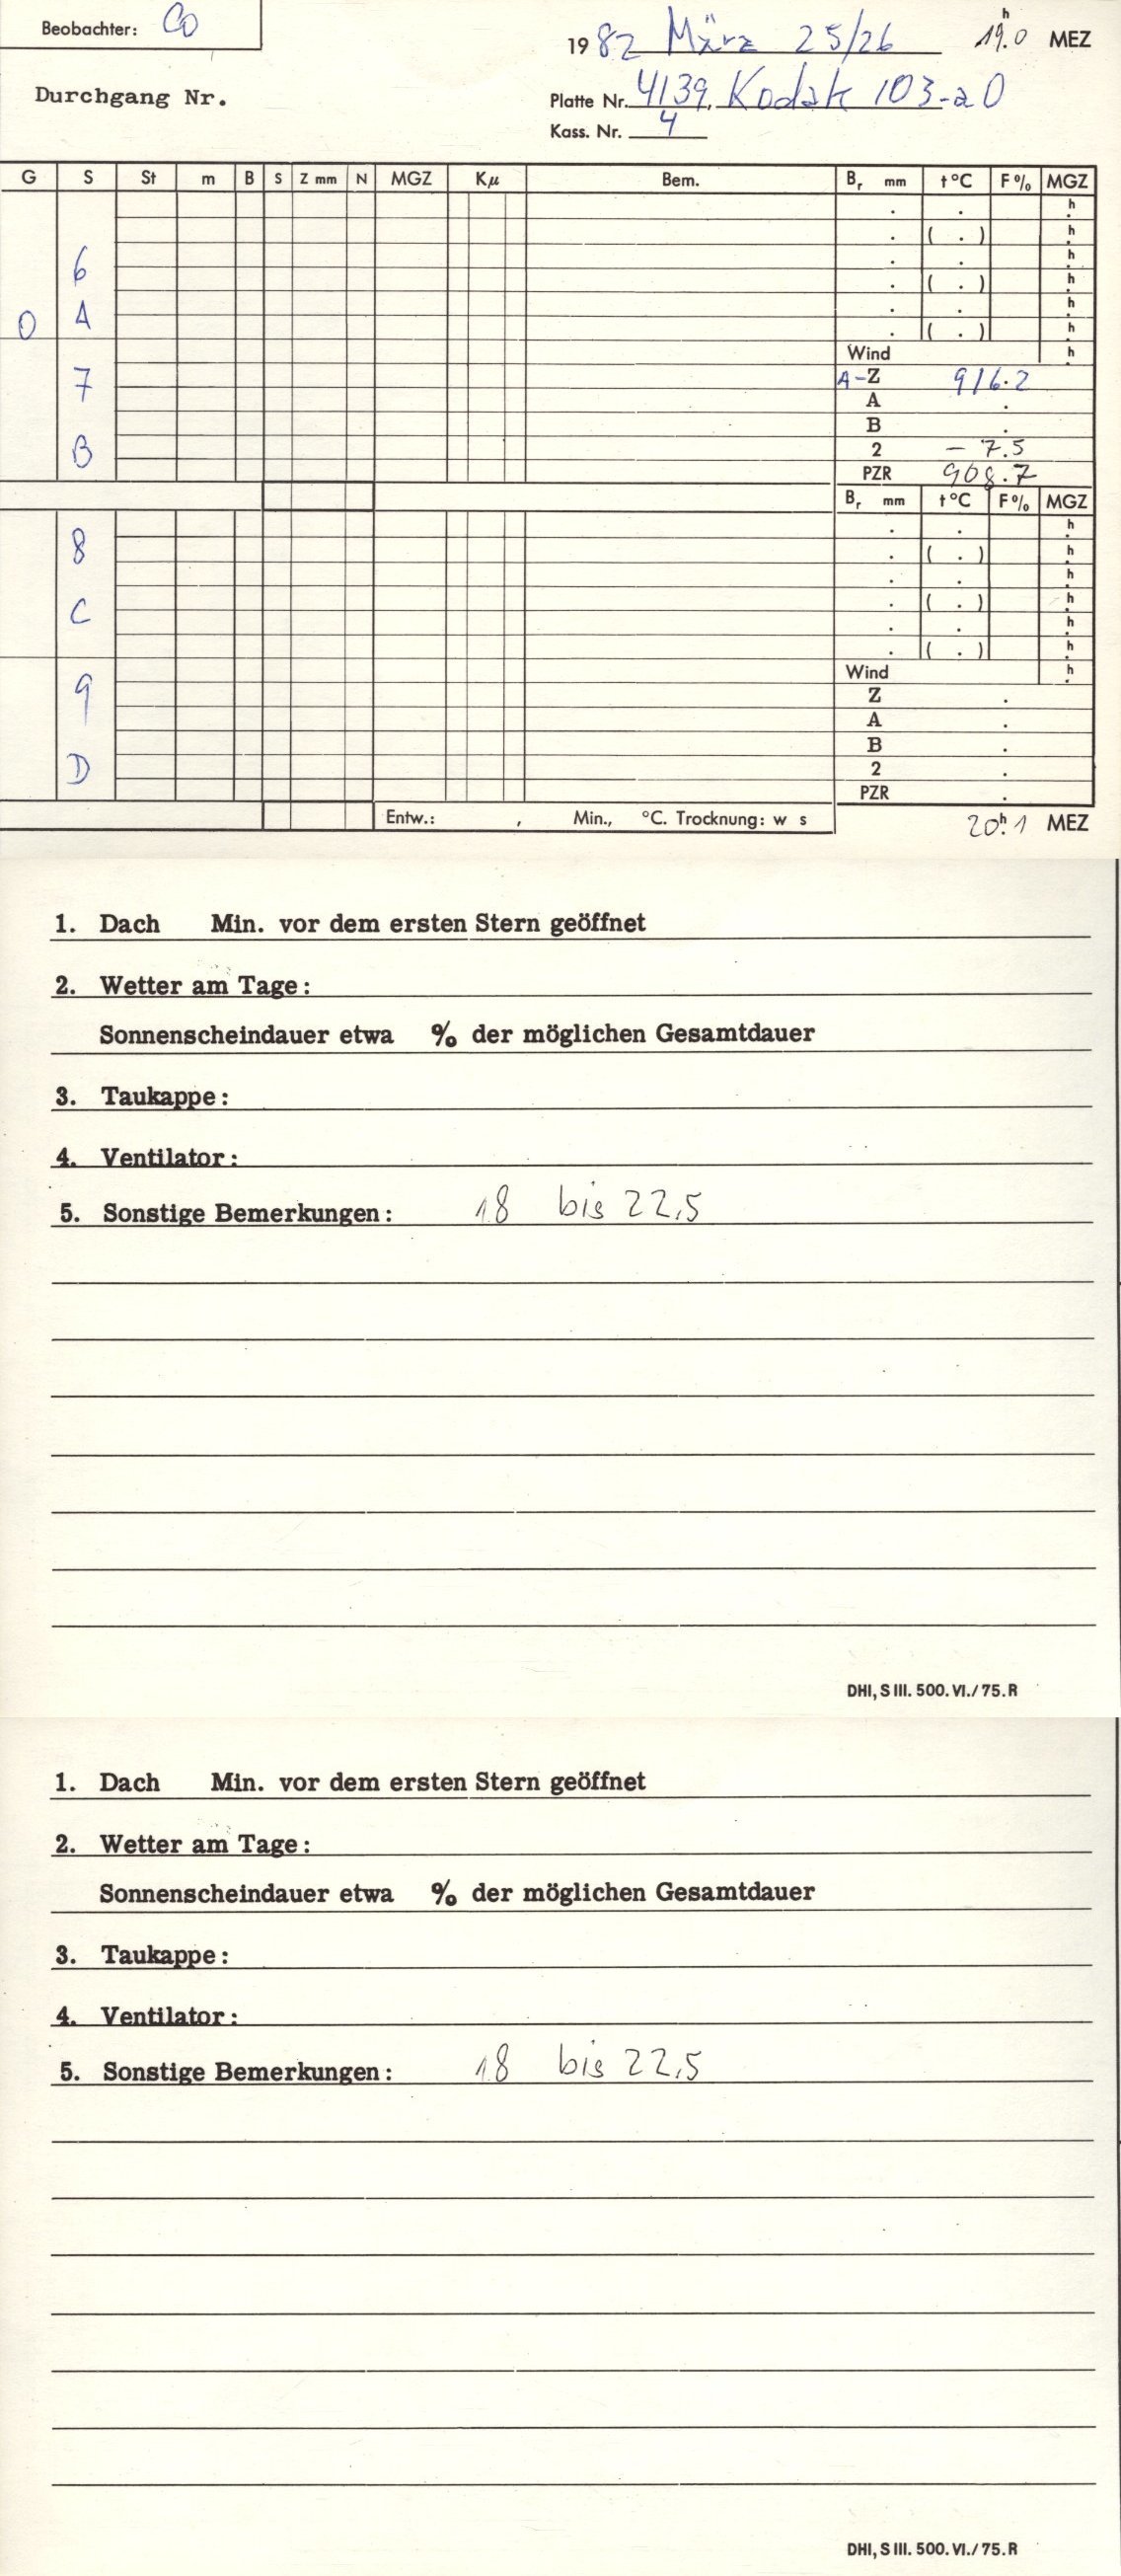 Beobachter: Co
1982 März 25/26 19h.0 MEZ
Durchgang Nr.
Platte Nr. 4139, Kodak 103-a O
Kass. Nr. 4
G S St m B S Z mm N MGZ Kμ Bem. Br mm t°C F% MGZ
. . h
. ( . ) h
. . h
6 . ( . ) h
. . h
0 A . ( . ) h
Wind h
7 A-Z 916.2
A .
B .
B 2 - 7.5
PZR 908.7
Br mm t°C F% MGZ
. . h
8 . ( . ) h
. . h
C . ( . ) h
. . h
. ( . ) h
Wind h
9 Z .
A .
B .
D 2 .
PZR .
Entw.: , Min., °C. Trocknung: w s
20h.1 MEZ
1. Dach Min. vor dem ersten Stern geöffnet
2. Wetter am Tage:
Sonnenscheindauer etwa % der möglichen Gesamtdauer
3. Taukappe:
4. Ventilator:
5. Sonstige Bemerkungen: 18 bis 22,5
DHI, S III. 500. VI./75. R
1. Dach Min. vor dem ersten Stern geöffnet
2. Wetter am Tage:
Sonnenscheindauer etwa % der möglichen Gesamtdauer
3. Taukappe:
4. Ventilator:
5. Sonstige Bemerkungen: 18 bis 22,5
DHI, S III. 500. VI./75. R